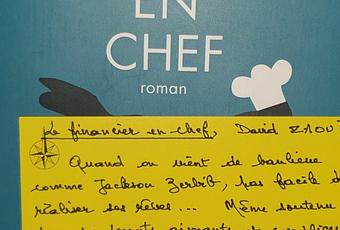 EN
CHEF
roman
Le financier en chef, David
Quand on vient de banlieue
comme Jackson Zerbib, pas facile d
réaliser ses rêves... Même soutenu